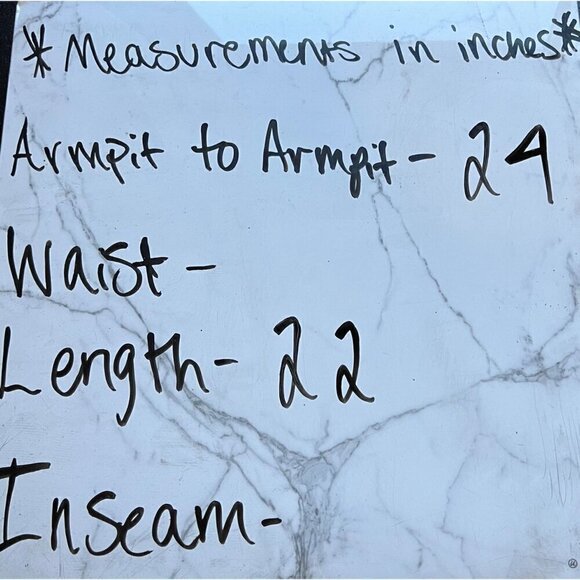 *Measurements in inches*
Armpit to Armpit- 24
Waist-
Length- 22
Inseam-